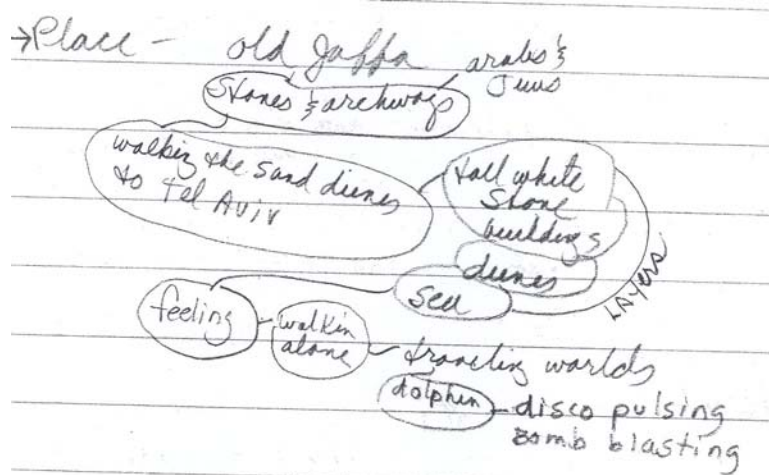 →Place - old Jaffa arabs &
Jews
Stones & archways
walking the sand dunes
to Tel Aviv
tall white
Stone
buildings
dunes
sea
LAYers
feeling
walkin
alone
traveling worlds
dolphin - disco pulsing
Bomb blasting